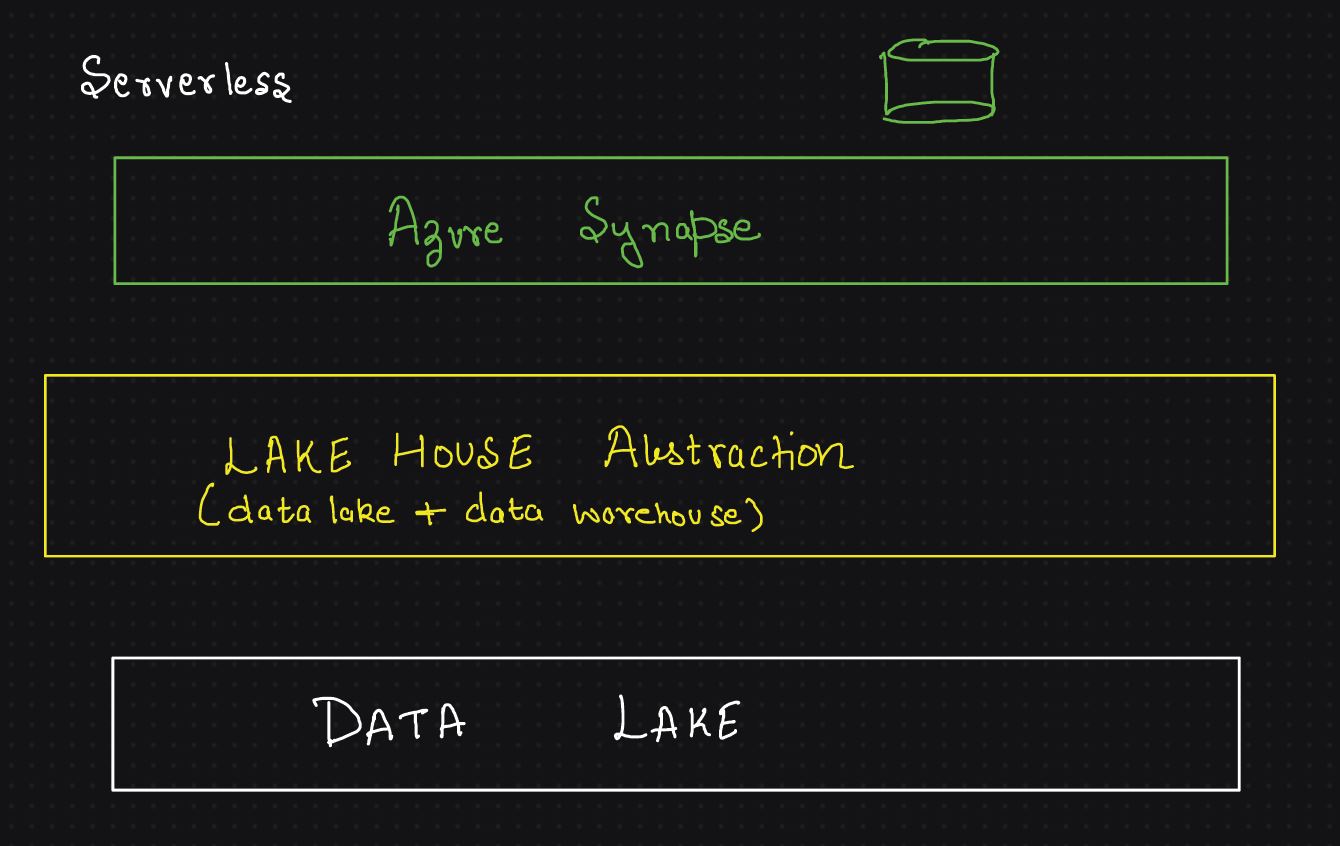 Serverless
Azure Synapse
LAKE HOUSE Abstraction
(data lake + data warehouse)
DATA LAKE